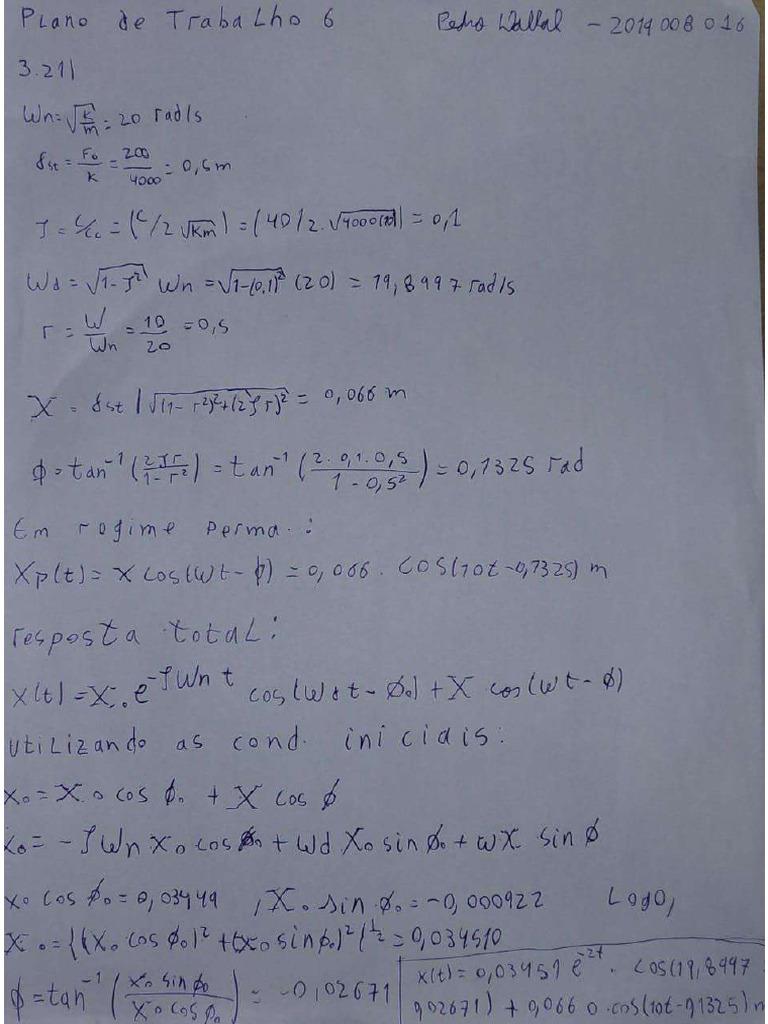 Plano de Trabalho 6 Pedro - 2014008016
3.21|
Wn=√(k/m)=20 rad/s
δst=F0/K=200/4000=0,5m
ζ=C/Cc=(C/2√Km)=(40/2.√4000(10))=0,1
Wd=√(1-ζ²) Wn=√(1-(0,1)²)(20)=19,8997 rad/s
r=W/Wn=10/20=0,5
X=δst|√((1-r²)²+(2ζr)²)=0,066 m
ϕ=tan⁻¹(2ζr/1-r²)=tan⁻¹(2.0,1.0,5/1-0,5²)=0,1325 rad
Em regime perma.:
Xp(t)=X cos(wt-ϕ)=0,066.cos(10t-0,1325) m
resposta total:
x(t)=X₀e^-ζWnt cos(wdt-ϕ₀)+X cos(wt-ϕ)
Utilizando as cond. iniciais:
x₀=X₀cosϕ₀+X cosϕ
ẋ₀=-ζWn X₀cosϕ₀+wd X₀sinϕ₀+wX sinϕ
x₀cosϕ₀=0,03449, X₀sinϕ₀=-0,000922 Logo,
X₀={(X₀cosϕ₀)²+(x₀sinϕ₀)²}^1/2=0,034510
ϕ=tan⁻¹(x₀sinϕ₀/x₀cosϕ₀)=-0,02671
x(t)=0,03451e^-2t.cos(19,8997
0,02671)+0,0660.cos(10t-0,1325)m